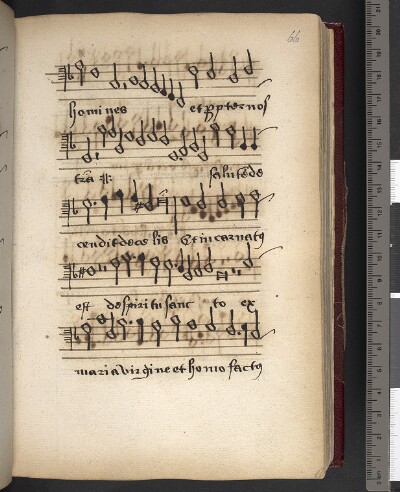 66
homines et ppter nos
trā :||: salutē de
cendit de celis Et incarnatꝰ
est de spiritu sanc to ex
maria virgine et homo factꝰ